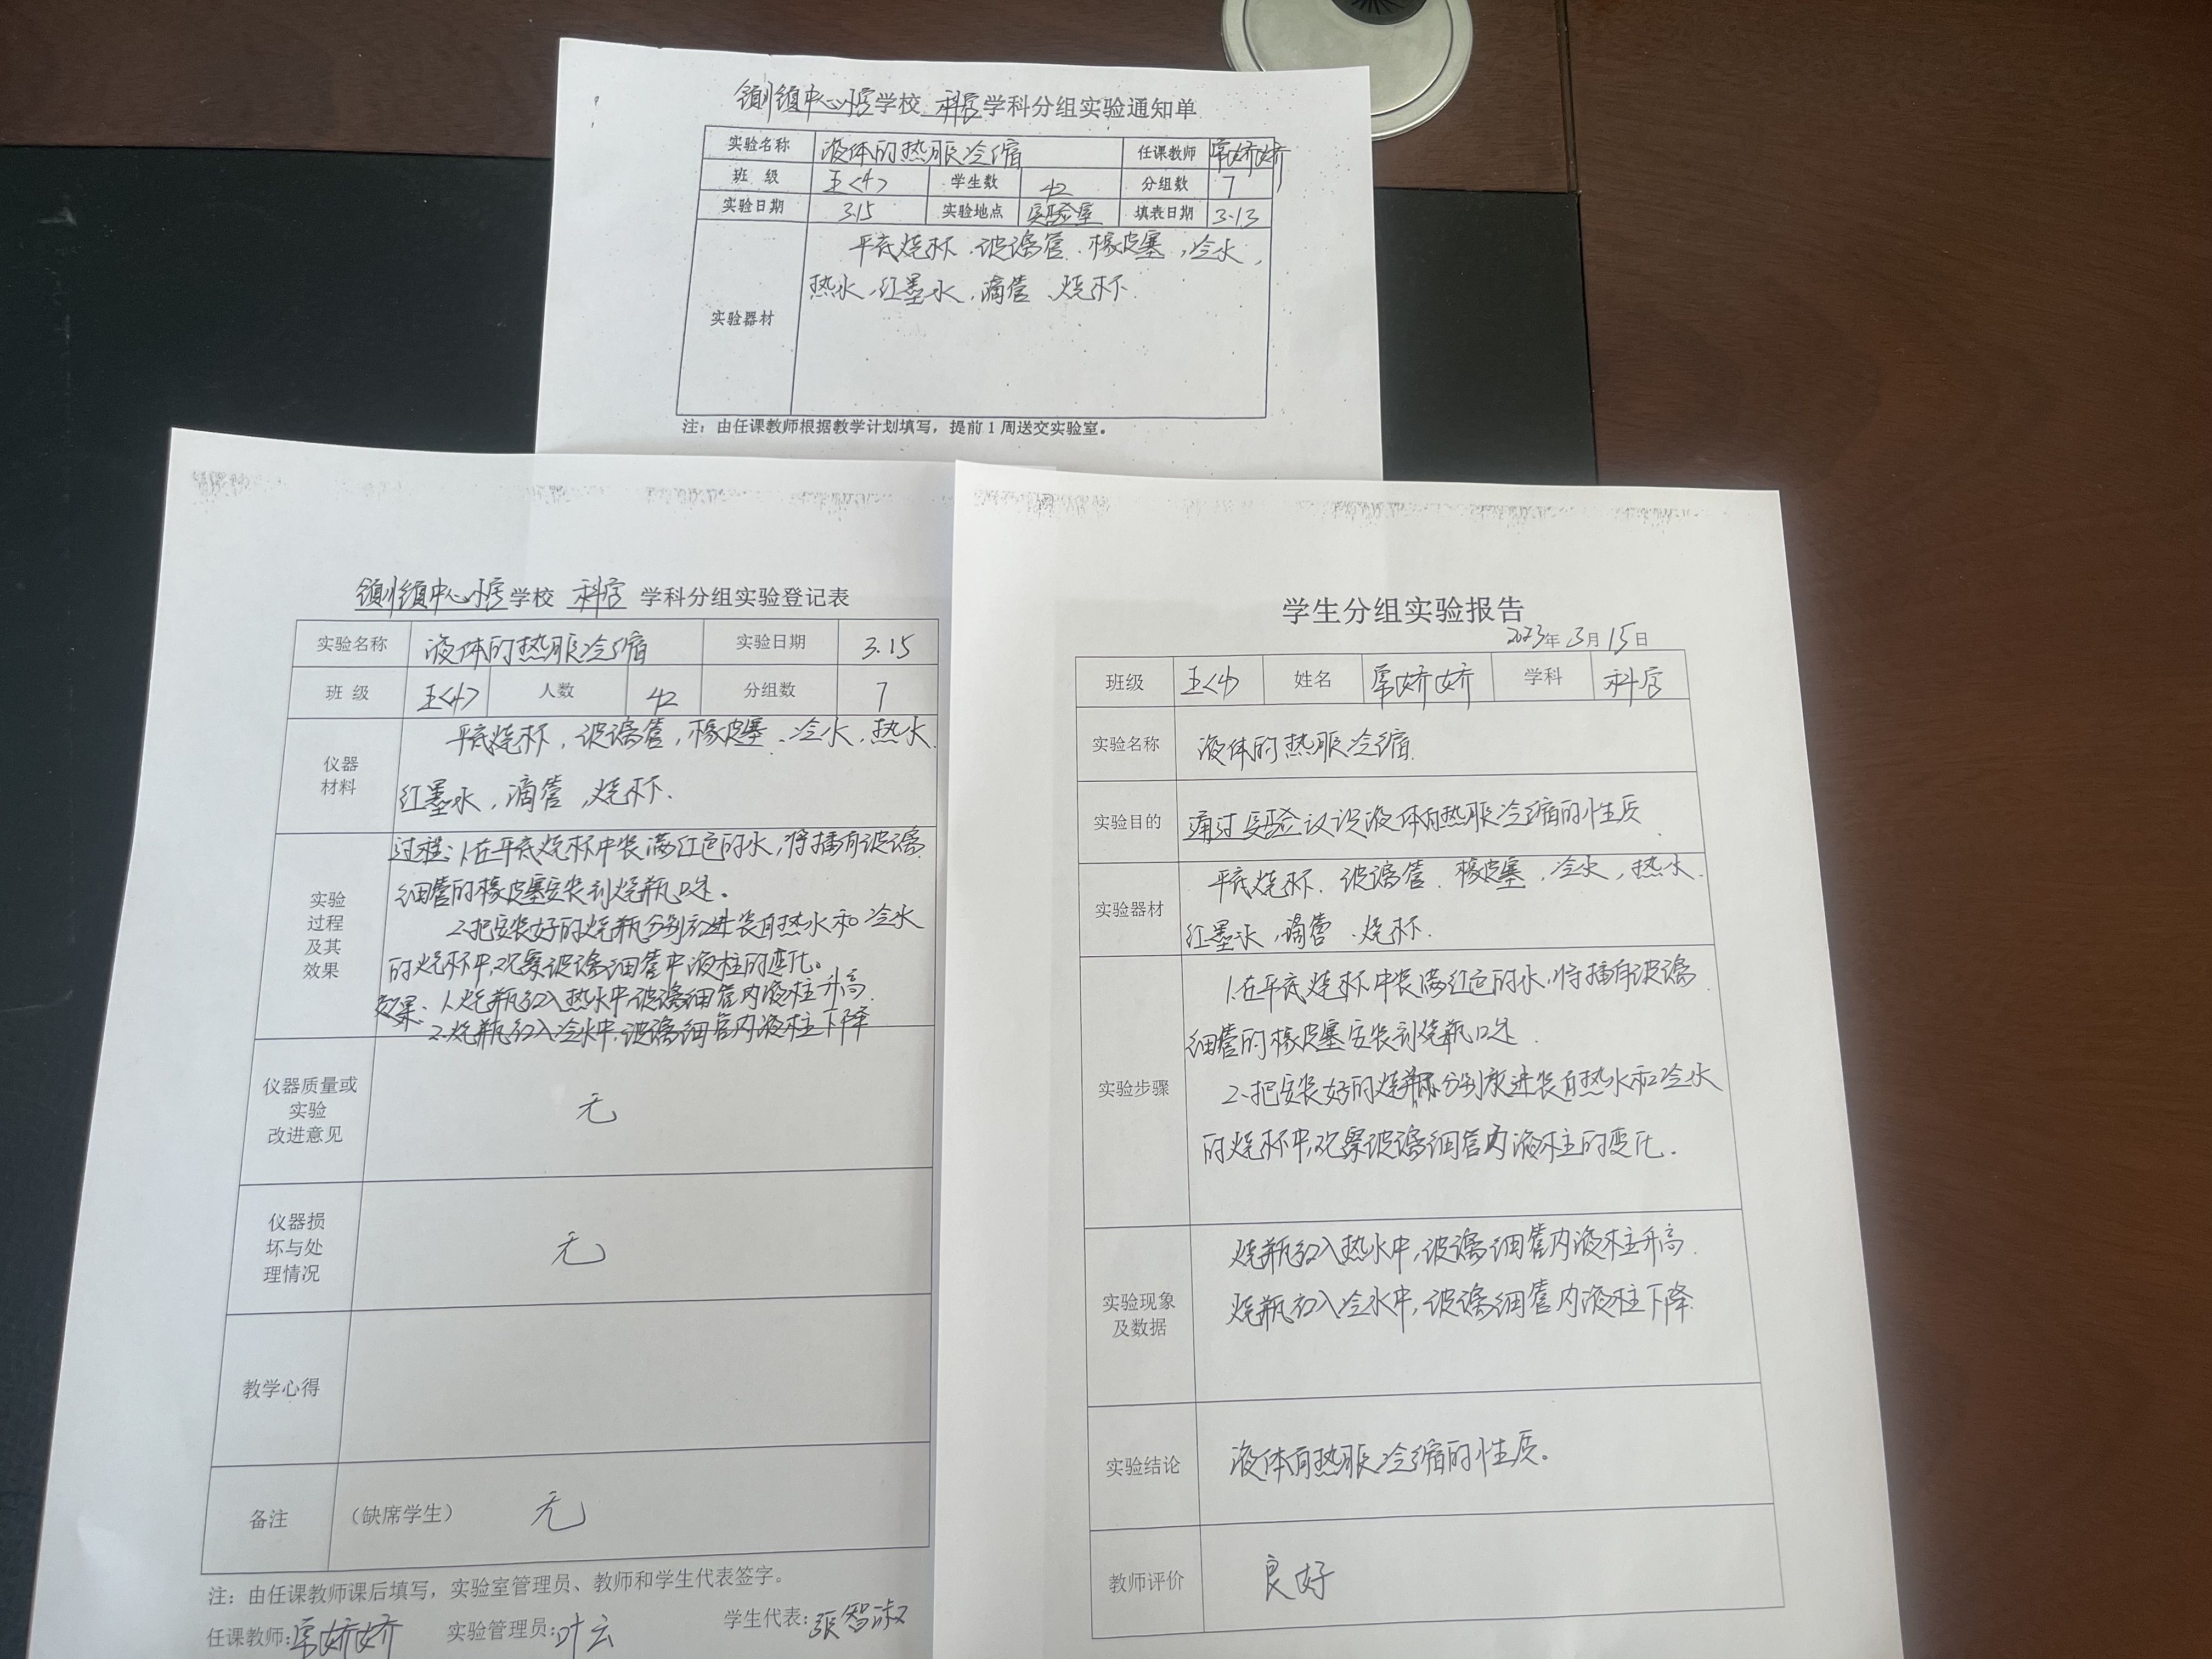 镇中心小学学校 科学学科分组实验通知单
实验名称 液体的热胀冷缩 任课教师 常娇娇
班 级 五<4> 学生数 42 分组数 7
实验日期 3.15 实验地点 实验室 填表日期 3.13
实验器材 平底烧杯、玻璃管、橡皮塞,冷水,
热水,红墨水,滴管、烧杯.
注:由任课教师根据教学计划填写,提前1周送交实验室。
镇中心小学学校 科学 学科分组实验登记表
实验名称 液体的热胀冷缩 实验日期 3.15
班 级 五<4> 人数 42 分组数 7
仪器
材料
平底烧杯,玻璃管,橡皮塞、冷水,热水.
红墨水,滴管,烧杯.
实验
过程
及其
效果
过程:1.在平底烧杯中装满红色的水,将插有玻璃
细管的橡皮塞安装到烧瓶口处。
2.把安装好的烧瓶分别放进装有热水和冷水
的烧杯中,观察玻璃细管中液柱的变化。
效果:1.烧瓶放入热水中,玻璃细管内液柱升高.
2.烧瓶放入冷水中,玻璃细管内液柱下降
仪器质量或
实验
改进意见
无
仪器损
坏与处
理情况
无
教学心得
备注 (缺席学生) 无
注:由任课教师课后填写,实验室管理员、教师和学生代表签字。
任课教师:常娇娇 实验管理员:叶云 学生代表:张智淑
学生分组实验报告
2023年3月15日
班级 五<4> 姓名 常娇娇 学科 科学
实验名称 液体的热胀冷缩.
实验目的 通过实验认识液体有热胀冷缩的性质.
实验器材 平底烧杯、玻璃管、橡皮塞,冷水,热水.
红墨水,滴管、烧杯.
实验步骤
1.在平底烧杯中装满红色的水,将插有玻璃
细管的橡皮塞安装到烧瓶口处.
2.把安装好的烧瓶分别放进装有热水和冷水
的烧杯中,观察玻璃细管内液柱的变化.
实验现象
及数据
烧瓶放入热水中,玻璃细管内液柱升高.
烧瓶放入冷水中,玻璃细管内液柱下降.
实验结论 液体有热胀冷缩的性质。
教师评价 良好